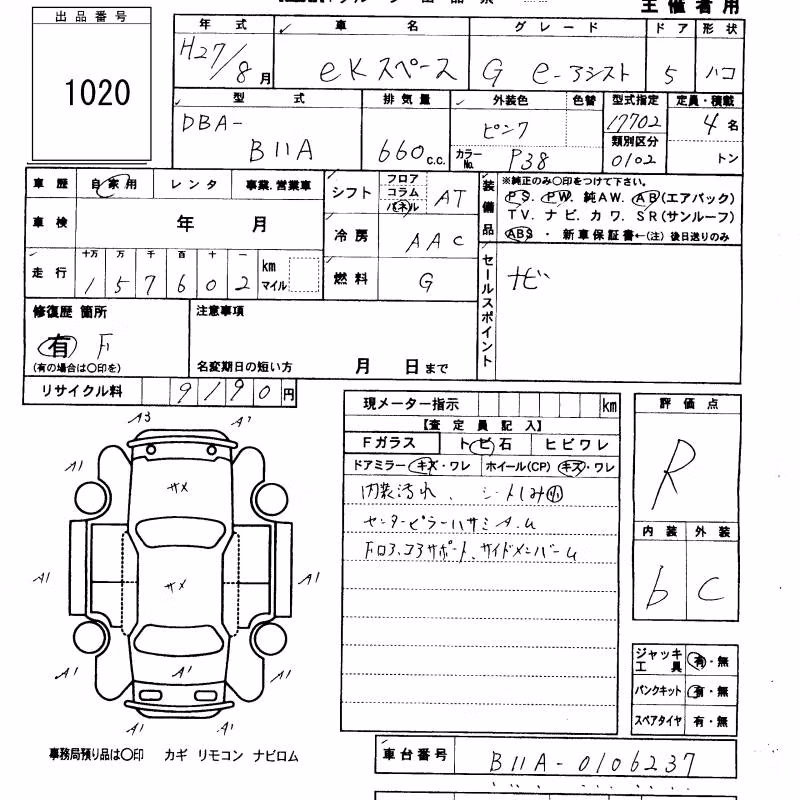 主催者用
出品番号
1020
年式 車名 グレード ドア 形状
H27/8月 eKスペース G e-アシスト 5 ハコ
型式 排気量 外装色 色替 型式指定 定員・積載
DBA- B11A 660c.c. ピンク 17702 4名
カラーNo. P38 類別区分 0102 トン
車歴 自家用 レンタ 事業.営業車
シフト フロア コラム パネル AT
装備品 ※純正のみ○印をつけて下さい。
PS. PW. 純AW. AB(エアバック)
TV. ナビ. カワ. SR(サンルーフ)
ABS・新車保証書←(注)後日送りのみ
車検 年 月
冷房 AAC
走行 十万 万 千 百 十 一 km マイル
1 5 7 6 0 2
燃料 G
セールスポイント ナビ
修復歴 箇所
有 F
(有の場合は○印を)
注意事項
名変期日の短い方 月 日まで
リサイクル料 9190円
現メーター指示 km
【査定員記入】
Fガラス トビ石 ヒビワレ
ドアミラー キズ・ワレ ホイール(CP) キズ・ワレ
内装汚れ、シートしみ小
センターピラーハサミA.ム
Fロア.コアサポート、サイドメンバーム
評価点
R
内装 外装
b C
A3 A1
A1 サメ A1
A1 サメ A1
A1 A1 A1
A1 A1
ジャッキ工具 有・無
パンクキット 有・無
スペアタイヤ 有・無
事務局預り品は○印 カギ リモコン ナビロム
車台番号 B11A-0106237